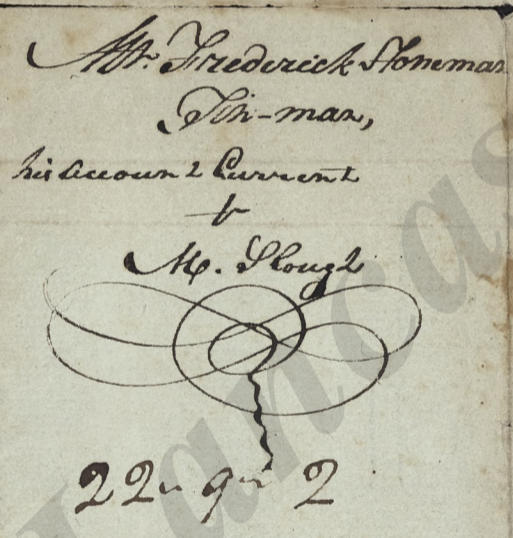 Mr. Frederick Stoneman
Tin-man,
his Account Current
M. Slough
22
2
Lancas